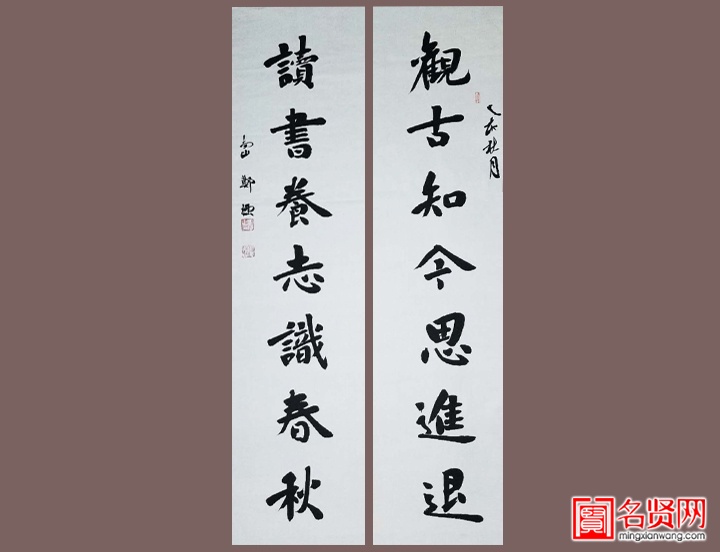 觀古知今思進退
乙亥秋月
讀書養志識春秋
名贤网
mingxianwang.com